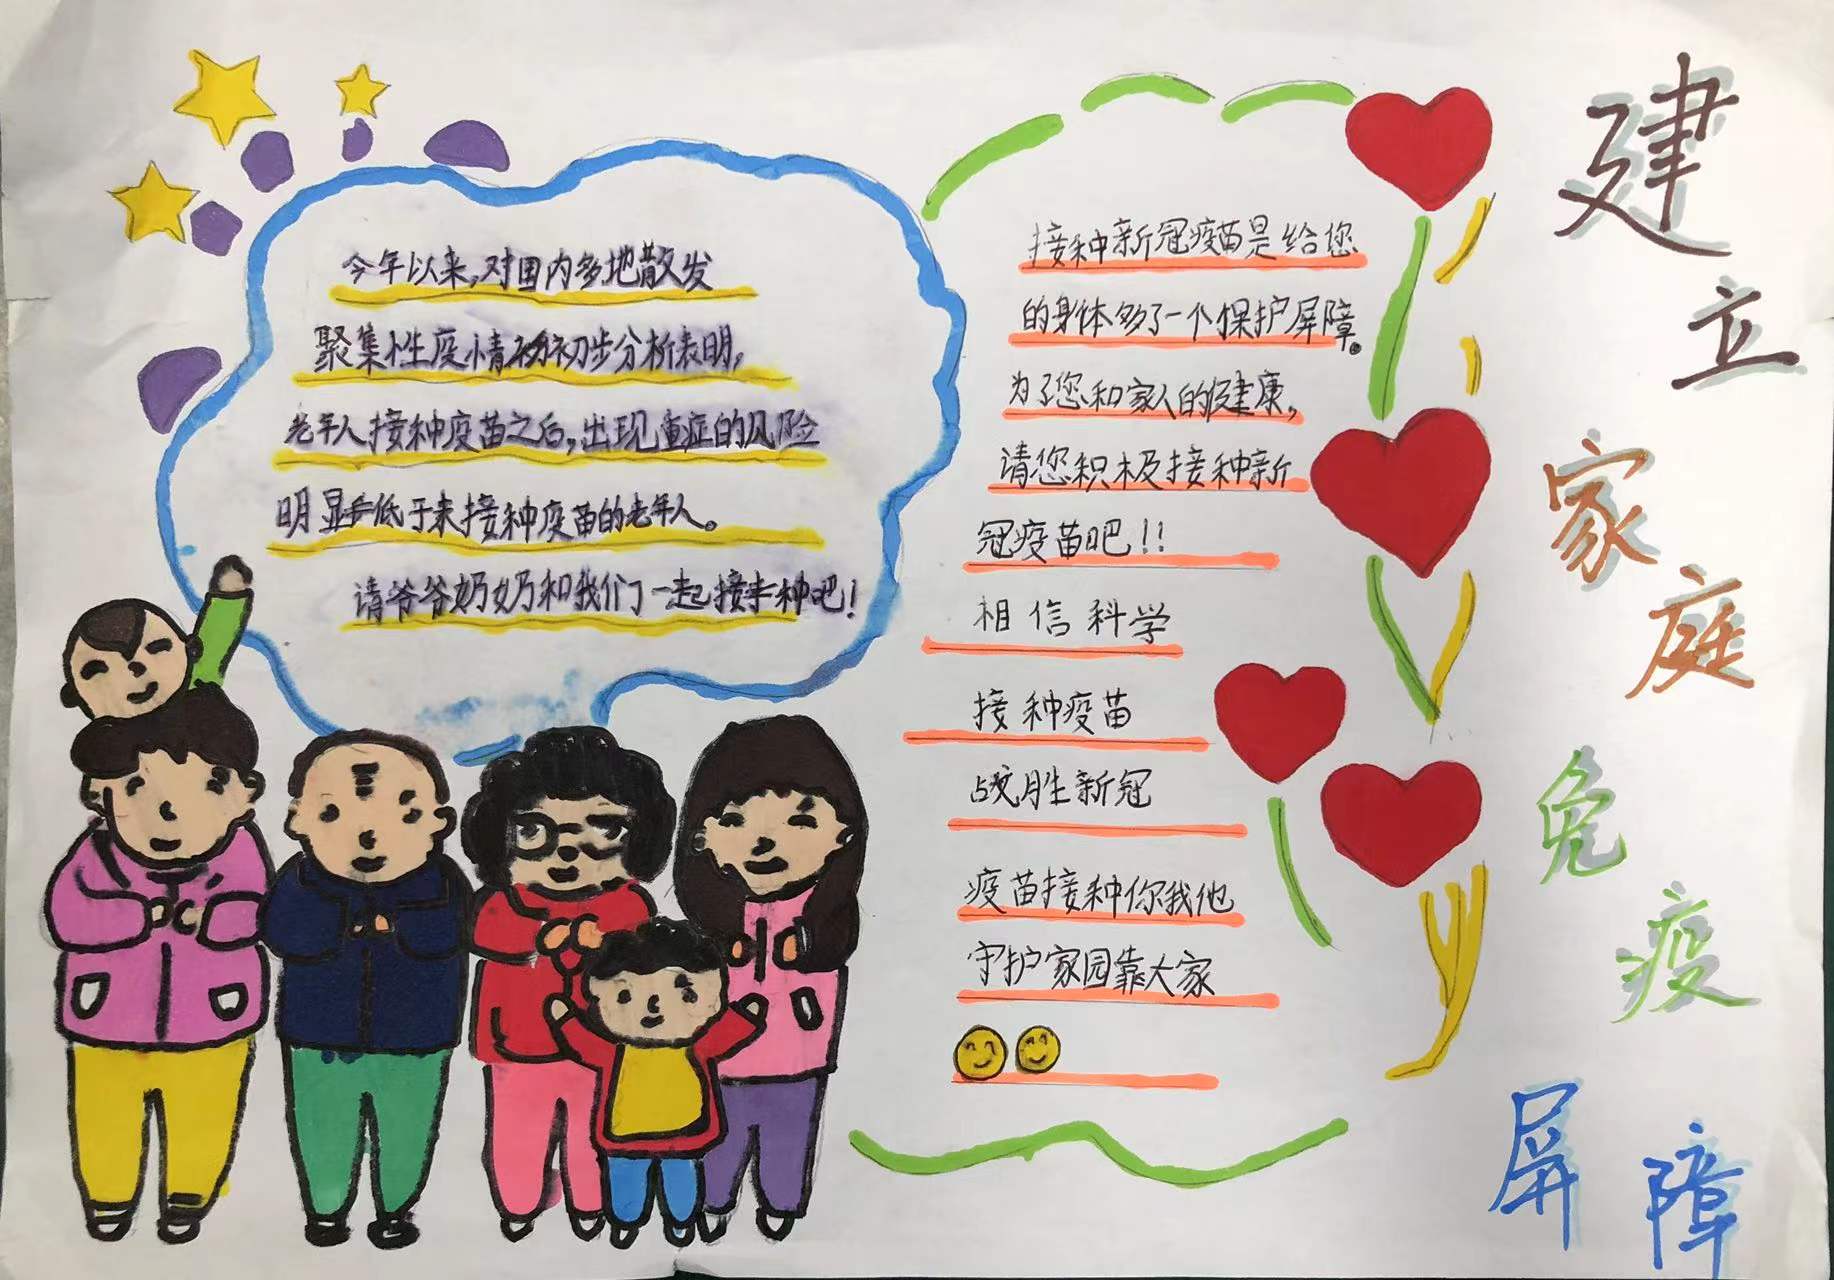 建立家庭免疫屏障
今年以来,对国内多地散发
聚集性疫情初步分析表明,
老年人接种疫苗之后,出现重症的风险
明显低于未接种疫苗的老年人。
请爷爷奶奶和我们一起接种吧!
接种新冠疫苗是给您
的身体多了一个保护屏障。
为了您和家人的健康,
请您积极接种新
冠疫苗吧!!
相信科学
接种疫苗
战胜新冠
疫苗接种你我他
守护家园靠大家